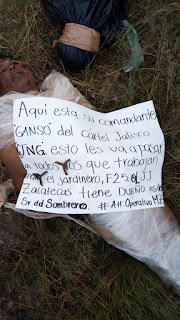 Aqui esta su comandante
"GANSO" del cartel Jalisco
CJNG. esto les va a pasar
a todos los que trabajan
el jardinero, F25 JJ
Zacatecas tiene DUEÑO es el
Sr del Sombrero. #Att. Operativo MZ